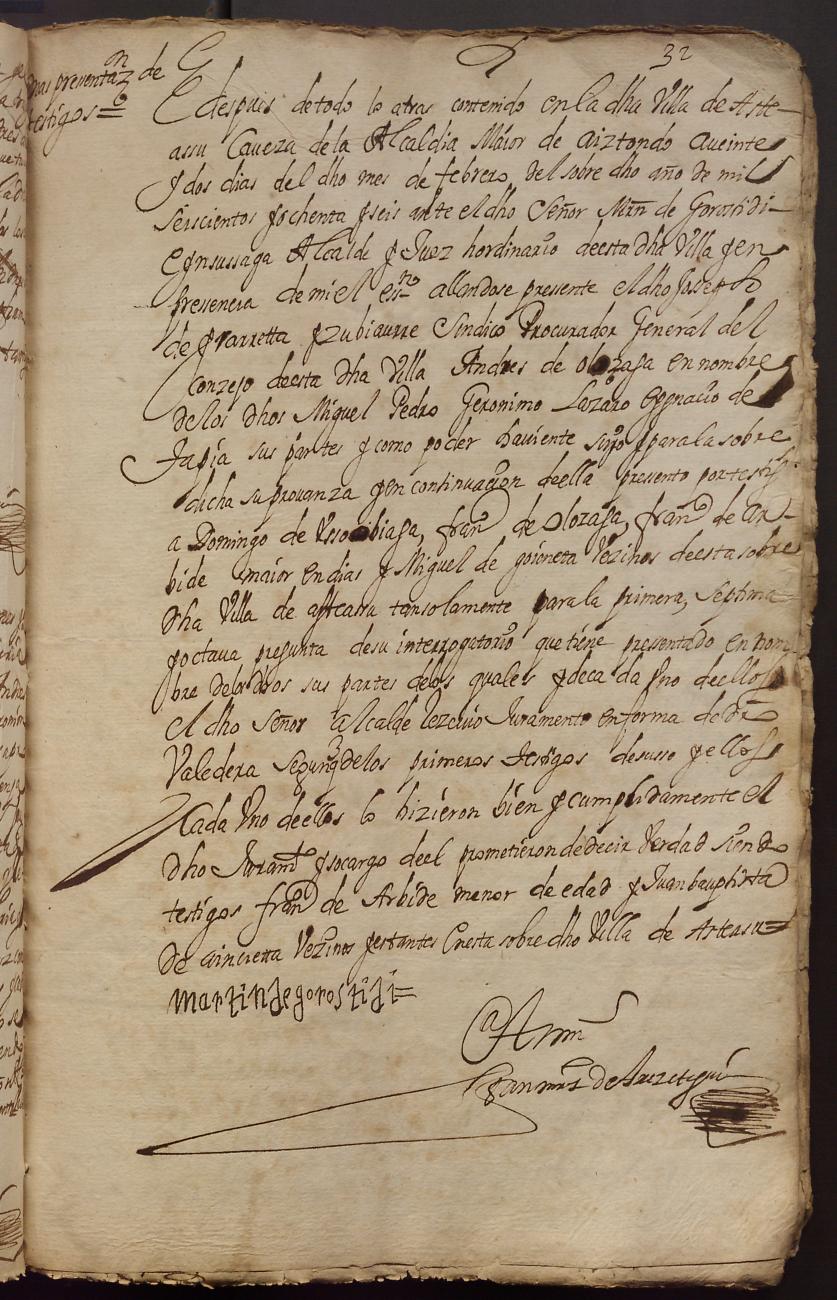 32
mas presentaz.on de
testigos =
E despues de todo lo atras contenido en la dha Villa de Aste-
assu Caveza de la Alcaldia Maior de aiztondo a veinte
y dos dias del dho mes de febrero del sobre dho año de mil
seiscientos y ochenta y seis ante el dho Señor Mrn de Gorostidi
e ynsussaga Alcalde y Juez hordinario de esta dha Villa y en
presencia de mi el essno allandose presente el dho Joseph
de yrarretta y zubiaurre Sindico Procurador General del
Conzejo de esta dha Villa Andres de olozaga en nombre
de los dhos Miguel Pedro Geronimo Lazaro e ygnacio de
Tapia sus partes y como poder haviente suyo y para la sobre
dicha su provanza y en continuacion de ella presento por testigos
a Domingo de franco de olozaga, franco de Ar-
bide maior en dias y Miguel de goieneta Vezinos de esta sobre
dha Villa de asteassu tansolamente para la primera, septima
y octava pregunta de su interrogatorio que tiene presentado en nom
bre de los dhos sus partes de los quales y de cada uno de ellos
el dho Señor alcalde rezevio Juramento en forma de dro
Valedera segun q de los primeros testigos desusso y ellos
Cada Uno de ellos lo hizieron bien y cumplidamente el
dho Juramto y so cargo de el prometieron de decir Verdad siendo
testigos franco de Arbide menor de edad y Juan bauptista
de aincieta Vezinos y estantes en esta sobre dho Villa de Asteasu =
martin de gorostidi =
Ante mi